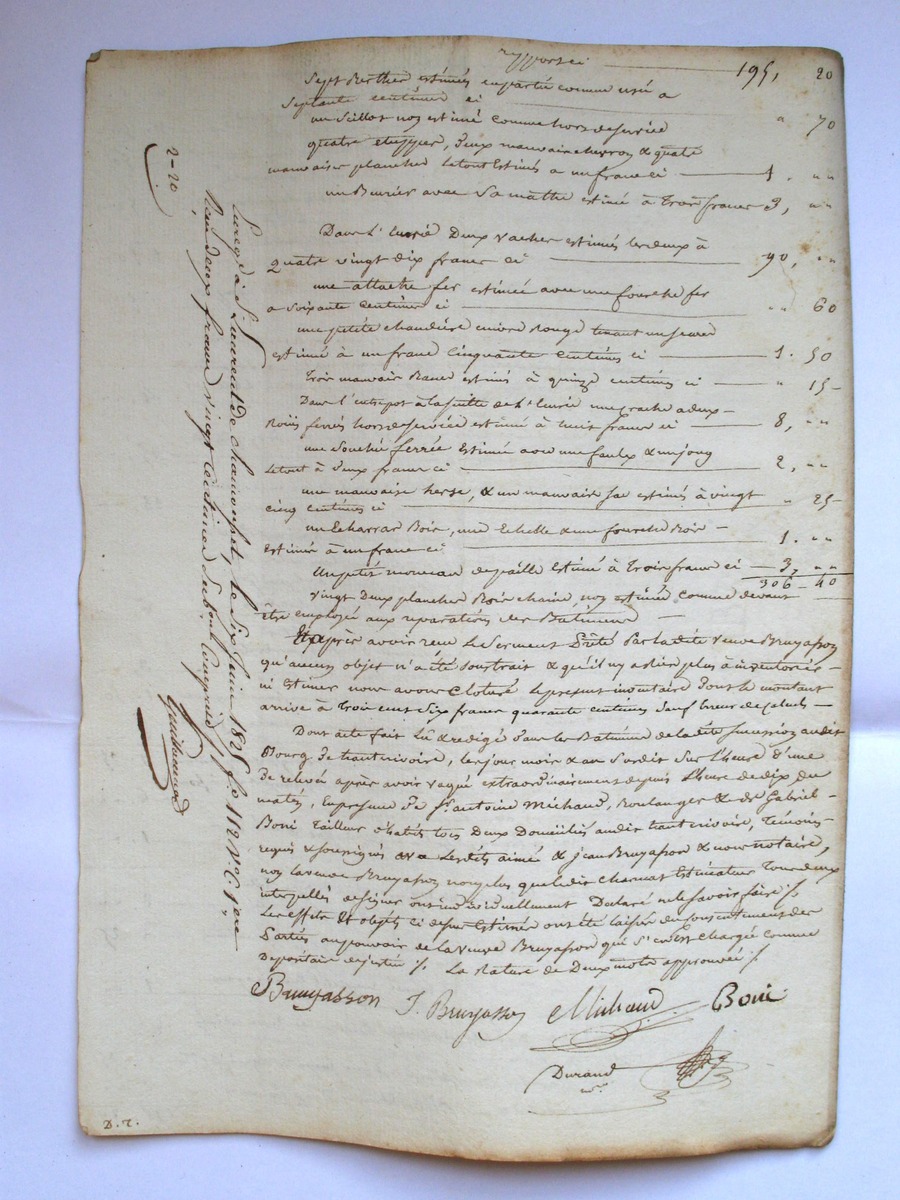 rapport ci 195, 20
Sept Berthes estimées en partie comme usé a
Septante centimes ci " 70
un Seillot non estimé comme hors de service
quatre mauvais chevron & quatre
mauvaises planches le tout Estimés a un franc ci 1. " "
un Burier avec Sa estimé à Trois francs 3, " "
Dans l'Ecurie Deux vaches estimées les deux à
quatre vingt dix francs ci 90, " "
une attache fer estimée avec une fourche fer
a soixante centimes ci " " 60
une petite chaudière cuivre Rouge tenant un
estimé à un franc Cinquante Centimes ci 1. 50
Trois mauvais estimés à quinze centimes ci " 15
Dans l'entrepot à la suitte de l'Ecurie une à deux
Roües ferrés hors de service estimé à huit francs ci 8, " "
une ferrée Estimée avec une faulx & un joug
le tout à Deux francs ci 2, " "
une mauvaise herse, & un mauvais estimés à vingt
cinq centimes ci " 25
un Bois, une Echelle & une fourche Bois
Estimé à un franc ci 1. " "
Un petit monceau de paille Estimé à Trois francs ci 3, " "
306 - 40
vingt Deux planches Bois non estimées comme devant
être employée aux reparations des Batiments
Et après avoir reçu Le Serment Prêté par la dite veuve Bruyasson
qu'aucun objet n'a été soustrait & qu'il n'y a Rien plus à inventorier
ni Estimer nous avons Cloturé Le present inventaire Dont le montant
arrive à Trois cent Six francs quarante centimes Sauf Erreur de Calculs
Dont acte fait Lû & redigé Dans les Batiments de la dite Succession audit
Bourg de hauterivoire, les jour mois & an Susdit Sur l'heure d'une
de relevée après avoir vaqué extraordinairement depuis L'heure de dix du
matin, En presence De Sr. antoine Michaud, Boulanger & de Sr. Gabriel
Boni Tailleur d'habits tous Deux Domiciliés audit hauterivoire, Temoins
requis & soussignés avec Lesdits aimé & jean Bruyasson & nous notaire,
non la veuve Bruyasson non plus que ledit Charnat Estimateur Tous deux
interpellés de signer ont individuellement Declaré ne le savoir faire ./.
Les effets Et objets ci dessus Estimés ont été laissés du consentement des
Parties au pouvoir de la veuve Bruyasson qui S'en Est chargée comme
Depositaire de justice ./. La Rature de Deux mots approuvée ./.
Bruyasson J. Bruyasson Michaud Boni
Durand
2-20
Enregé à St. Laurent de Chamousset, le Six Juin 1828 fo. 112 Vo. C. 1ere
Reçu deux francs vingt Centimes Subvention Comprise
D. 7.